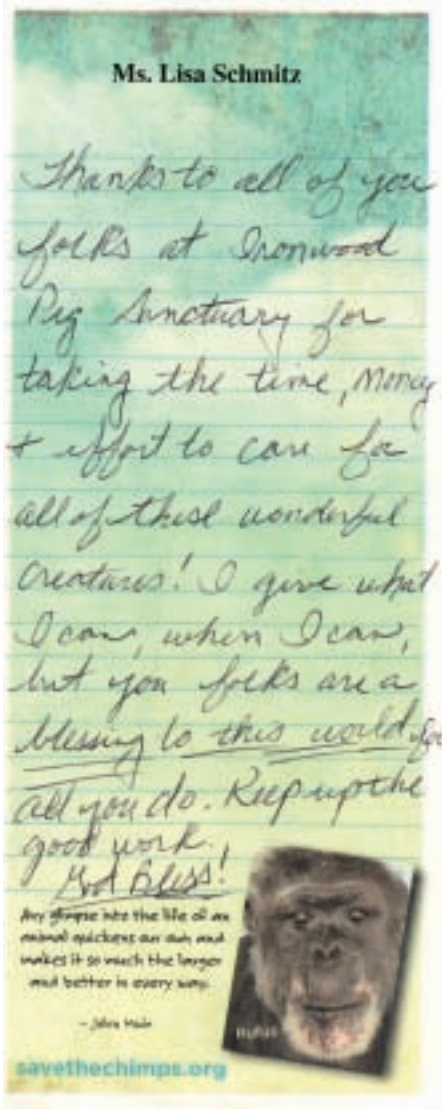 Ms. Lisa Schmitz
Thanks to all of you
folks at Ironwood
Pig Sanctuary for
taking the time, money
+ effort to care for
all of these wonderful
creatures! I give what
I can, when I can,
but you folks are a
blessing to this world for
all you do. Keep up the
good work.
God Bless!
Any glimpse into the life of an
animal quickens our own and
makes it so much the larger
and better in every way.
– John Muir
RUFUS
savethechimps.org